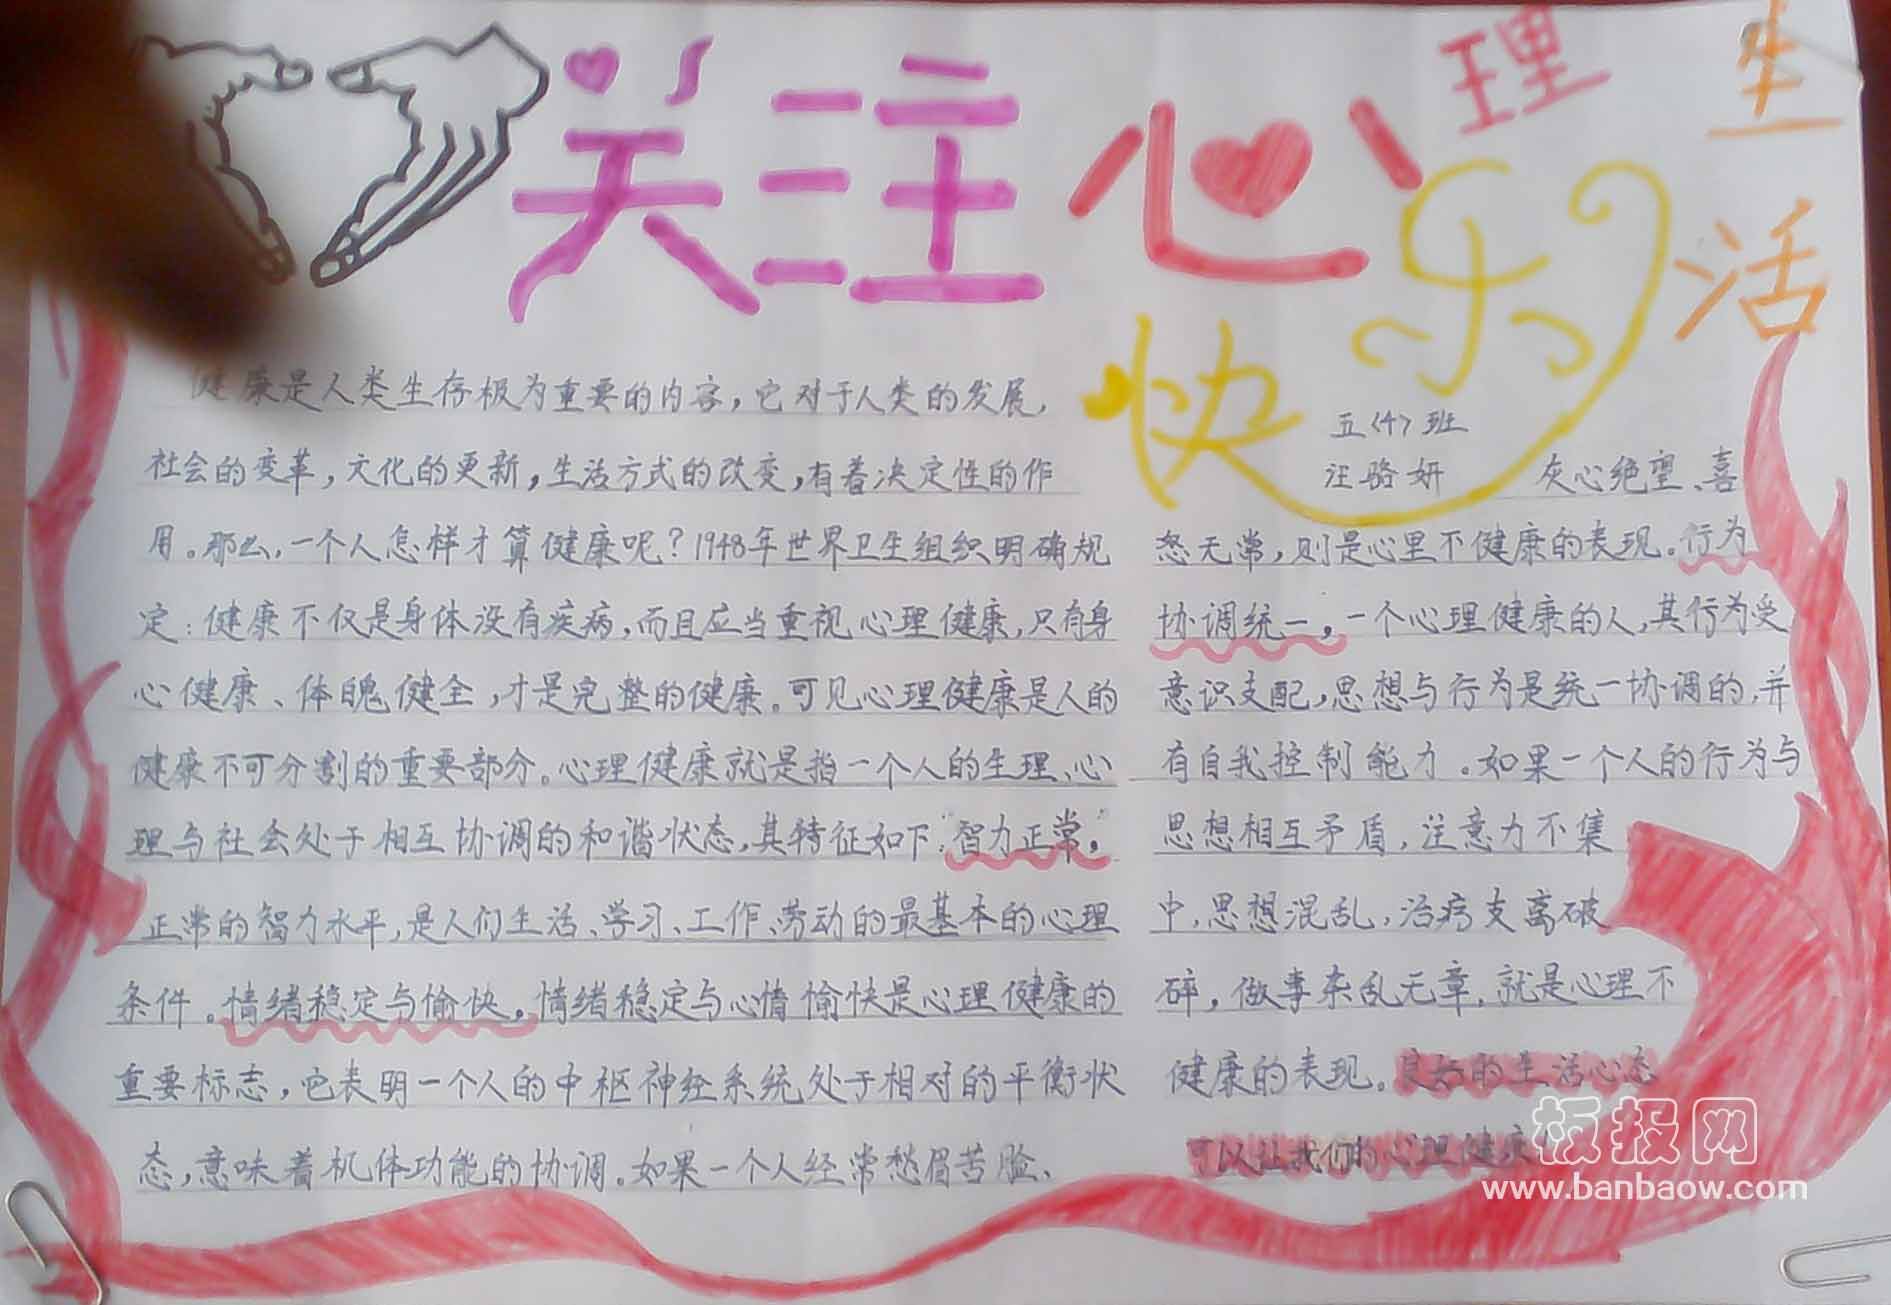 关注心理
快乐生活
五〈4〉班
汪骆妍
健康是人类生存极为重要的内容，它对于人类的发展，
社会的变革，文化的更新，生活方式的改变，有着决定性的作
用。那么，一个人怎样才算健康呢？1948年世界卫生组织明确规
定：健康不仅是身体没有疾病，而且应当重视心理健康，只有身
心健康、体魄健全，才是完整的健康。可见心理健康是人的
健康不可分割的重要部分。心理健康就是指一个人的生理、心
理与社会处于相互协调的和谐状态，其特征如下：“智力正常，”
正常的智力水平，是人们生活、学习、工作、劳动的最基本的心理
条件。情绪稳定与愉快，情绪稳定与心情愉快是心理健康的
重要标志，它表明一个人的中枢神经系统处于相对的平衡状
态，意味着机体功能的协调。如果一个人经常愁眉苦脸、
灰心绝望、喜
怒无常，则是心里不健康的表现。行为
协调统一，一个心理健康的人，其行为受
意识支配，思想与行为是统一协调的，并
有自我控制能力。如果一个人的行为与
思想相互矛盾，注意力不集
中，思想混乱，治疗支离破
碎，做事杂乱无章，就是心理不
健康的表现。良好的生活心态
可以让我们的心理健康
板报网
www.banbaow.com